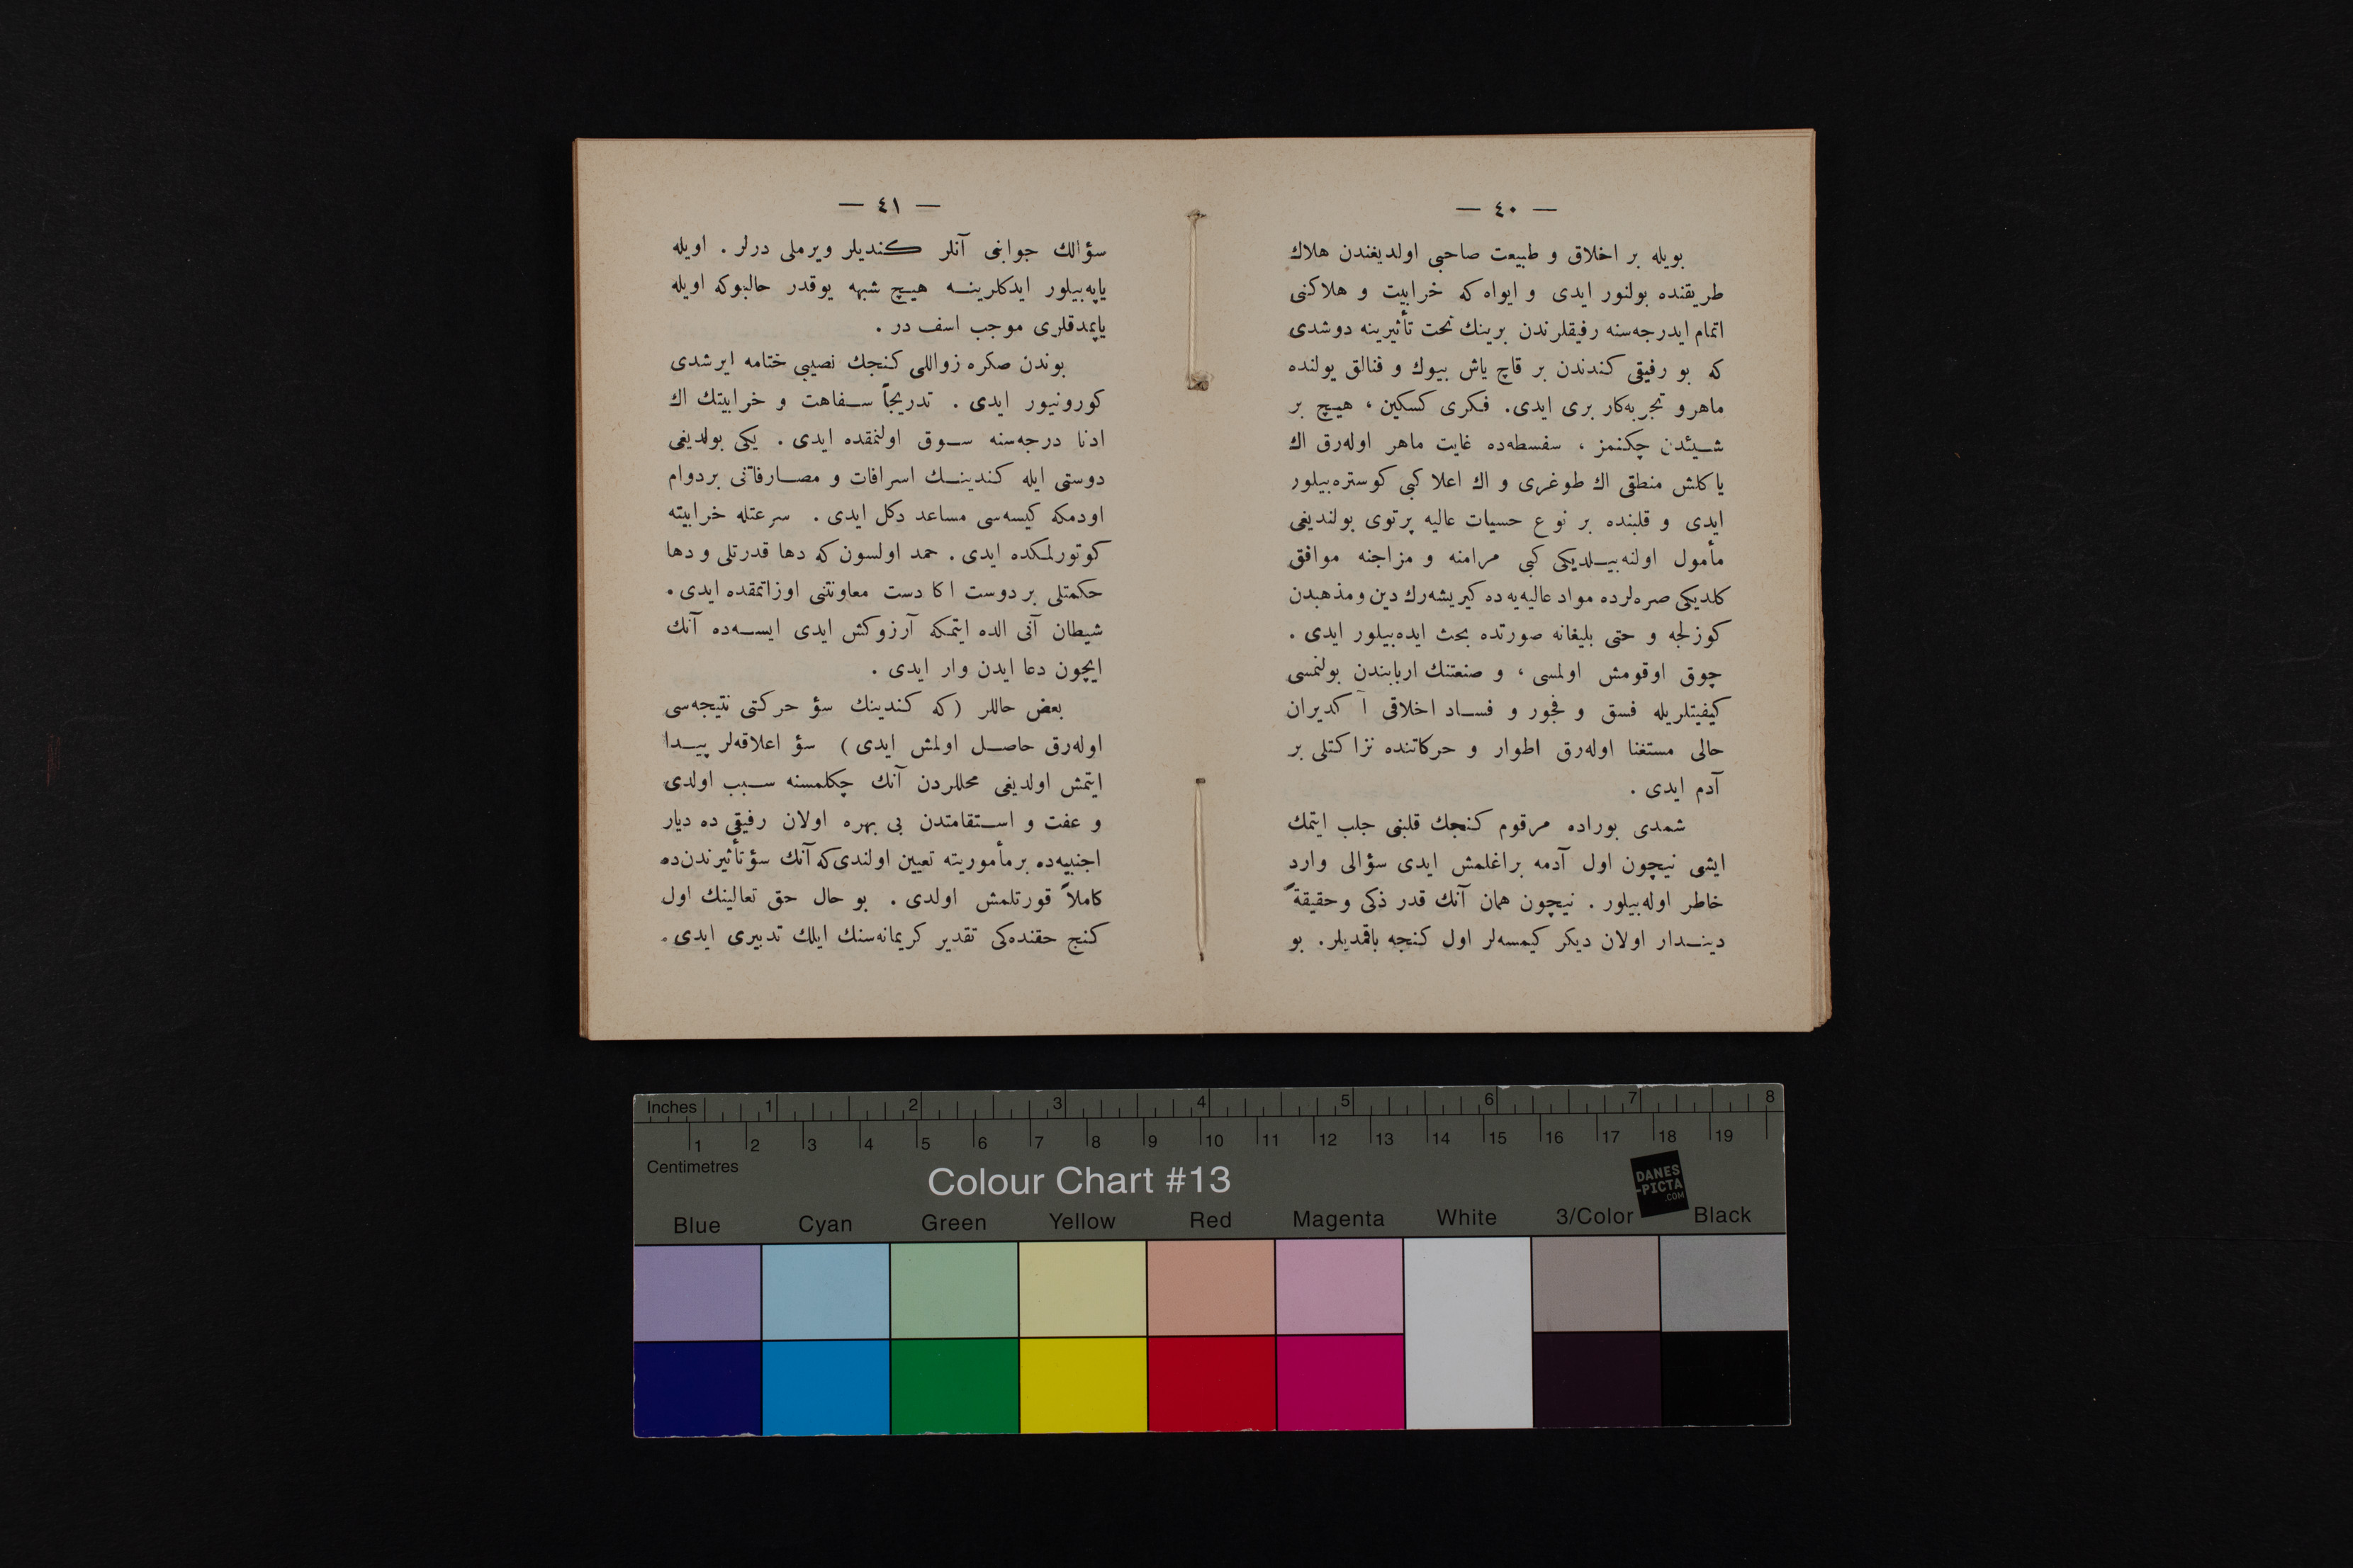 — ٤٠ —
بویله بر اخلاق و طبیعت صاحبی اولدیغندن هلاك
طریقنده بولنور ایدی و ایواه که خرابیت و هلاکنی
اتمام ایدرجه‌سنه رفیقلرندن برینك تحت تأثیرینه دوشدی
که بو رفیقی کندندن بر قاچ یاش بیوك و فنالق یولنده
ماهر و تجربه‌کار بری ایدی. فکری کسکین ، هیچ بر
شیئدن چکنمز ، سفسطه‌ده غایت ماهر اوله‌رق اك
یاکلش منطقی اك طوغری و اك اعلا کبی کوستره‌بیلور
ایدی و قلبنده بر نوع حسیات عالیه پرتوی بولندیغی
مأمول اولنه‌بیلدیکی کبی مرامنه و مزاجنه موافق
کلدیکی صره‌لرده مواد عالیه‌یه ده کیریشه‌رك دین و مذهبدن
کوزلجه و حتی بلیغانه صورتده بحث ایده‌بیلور ایدی .
چوق اوقومش اولمسی ، و صنعتنك اربابندن بولنمسی
کیفیتلریله فسق و فجور و فساد اخلاقی آ کدیران
حالی مستغنا اوله‌رق اطوار و حرکاتنده نزاکتلی بر
آدم ایدی .
شمدی بوراده مرقوم کنجك قلبنی جلب ایتمك
ایشی نیچون اول آدمه براغلمش ایدی سؤالی وارد
خاطر اوله‌بیلور . نیچون همان آنك قدر ذکی و حقیقةً
دیندار اولان دیکر کیمسه‌لر اول کنجه باقمدیلر. بو
— ٤١ —
سؤالك جوابنی آنلر کندیلر ویرملی درلر . اویله
یاپه‌بیلور ایدکلرینه هیچ شبهه یوقدر حالبوکه اویله
یاپمدقلری موجب اسف در .
بوندن صکره زواللی کنجك نصیبی ختامه ایرشدی
کورونیور ایدی . تدریجاً سفاهت و خرابیتك اك
ادنا درجه‌سنه سوق اولنمقده ایدی . یکی بولدیغی
دوستی ایله کندینك اسرافات و مصارفاتنی بردوام
اودمکه کیسه‌سی مساعد دکل ایدی . سرعتله خرابیته
کوتورلمکده ایدی . حمد اولسون که دها قدرتلی و دها
حکمتلی بر دوست اکا دست معاونتنی اوزاتمقده ایدی .
شیطان آنی الده ایتمکه آرزوکش ایدی ایسه‌ده آنك
ایچون دعا ایدن وار ایدی .
بعض حاللر (که کندینك سؤ حرکتی نتیجه‌سی
اوله‌رق حاصل اولمش ایدی) سؤ اعلاقه‌لر پیدا
ایتمش اولدیغی محللردن آنك چکلمسنه سبب اولدی
و عفت و استقامتدن بی بهره اولان رفیقی ده دیار
اجنبیه‌ده بر مأموریته تعیین اولندی که آنك سؤ تأثیرندن ده
کاملاً قورتلمش اولدی . بو حال حق تعالینك اول
کنج حقنده‌کی تقدیر کریمانه‌سنك ایلك تدبیری ایدی .
Inches 1 2 3 4 5 6 7 8
1 2 3 4 5 6 7 8 9 10 11 12 13 14 15 16 17 18 19
Centimetres
Colour Chart #13
DANES
-PICTA
.COM
Blue Cyan Green Yellow Red Magenta White 3/Color Black